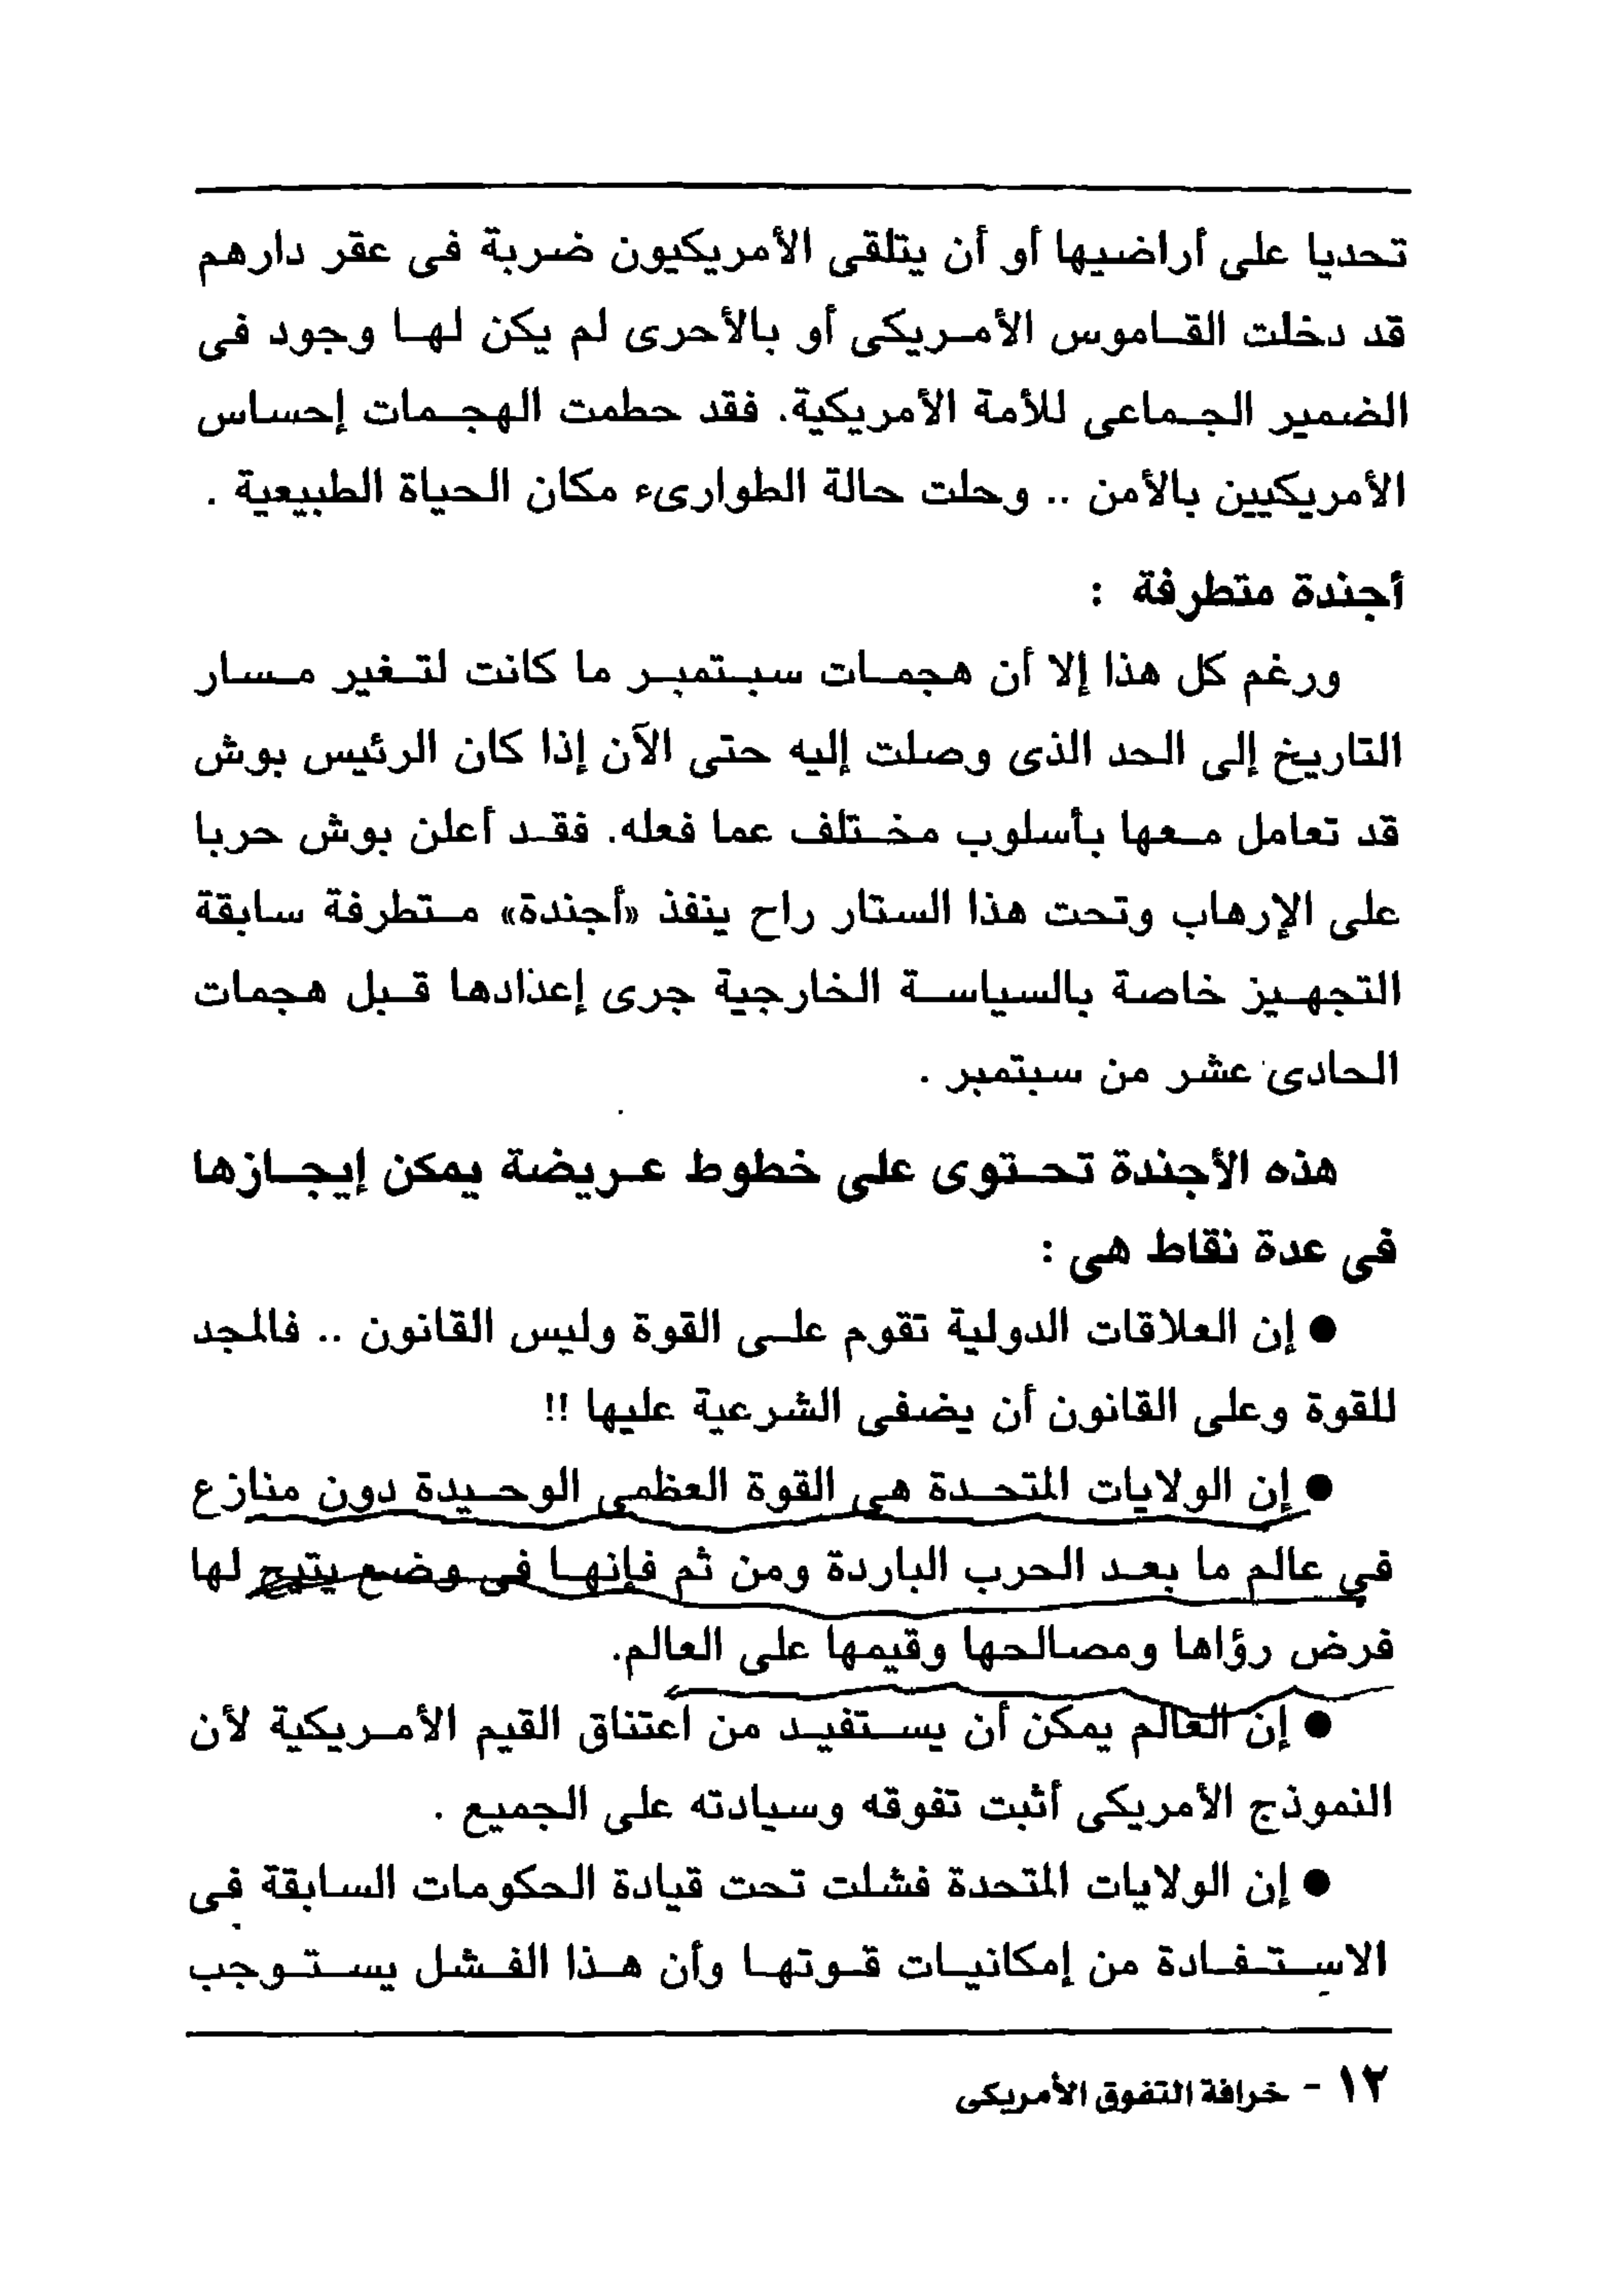 تحديا على أراضيها أو أن يتلقى الأمريكيون ضربة فى عقر دارهم
قد دخلت القاموس الأمريكى أو بالأحرى لم يكن لها وجود فى
الضمير الجماعى للأمة الأمريكية. فقد حطمت الهجمات إحساس
الأمريكيين بالأمن .. وحلت حالة الطوارىء مكان الحياة الطبيعية .
أجندة متطرفة :
ورغم كل هذا إلا أن هجمات سبتمبر ما كانت لتغير مسار
التاريخ إلى الحد الذى وصلت إليه حتى الآن إذا كان الرئيس بوش
قد تعامل معها بأسلوب مختلف عما فعله. فقد أعلن بوش حربا
على الإرهاب وتحت هذا الستار راح ينفذ «أجندة» متطرفة سابقة
التجهيز خاصة بالسياسة الخارجية جرى إعدادها قبل هجمات
الحادى عشر من سبتمبر .
هذه الأجندة تحتوى على خطوط عريضة يمكن إيجازها
فى عدة نقاط هى :
● إن العلاقات الدولية تقوم على القوة وليس القانون .. فالمجد
للقوة وعلى القانون أن يضفى الشرعية عليها !!
● إن الولايات المتحدة هى القوة العظمى الوحيدة دون منازع
فى عالم ما بعد الحرب الباردة ومن ثم فإنها فى وضع يتيح لها
فرض رؤاها ومصالحها وقيمها على العالم.
● إن العالم يمكن أن يستفيد من اعتناق القيم الأمريكية لأن
النموذج الأمريكى أثبت تفوقه وسيادته على الجميع .
● إن الولايات المتحدة فشلت تحت قيادة الحكومات السابقة فى
الاستفادة من إمكانيات قوتها وأن هذا الفشل يستوجب
١٢ - خرافة التفوق الأمريكى